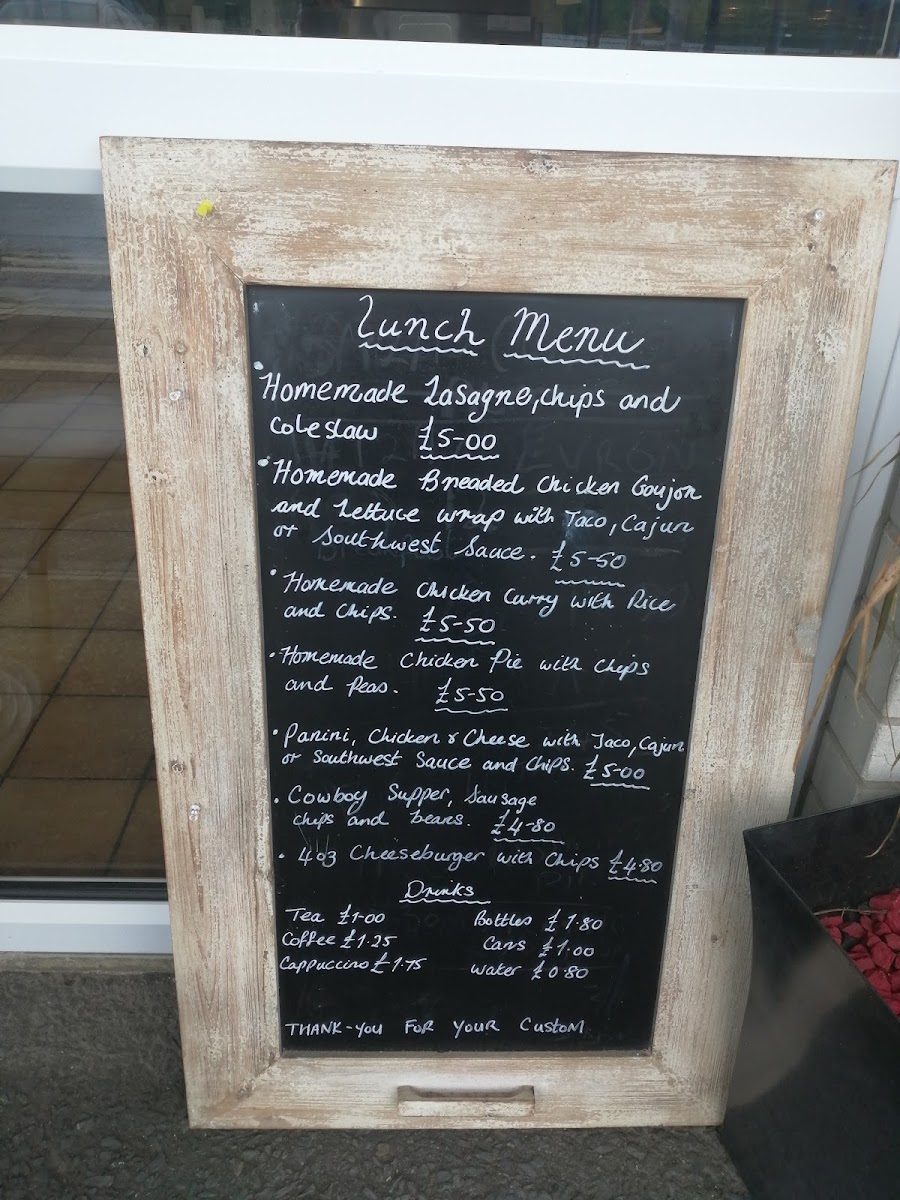 Lunch Menu
• Homemade Lasagne, chips and
coleslaw £5-00
• Homemade Breaded Chicken Goujon
and Lettuce wrap with Taco, Cajun
or Southwest Sauce. £5-50
• Homemade Chicken Curry with Rice
and Chips. £5-50
• Homemade Chicken Pie with Chips
and Peas. £5-50
• Panini, Chicken & Cheese with Taco, Cajun
or Southwest Sauce and Chips. £5-00
• Cowboy Supper, Sausage
chips and beans. £4-80
• 4oz Cheeseburger with Chips £4.80
Drinks
Tea £1-00 Bottles £1.80
Coffee £1.25 Cans £1.00
Cappuccino £1.75 Water £0.80
THANK-YOU FOR YOUR CUSTOM